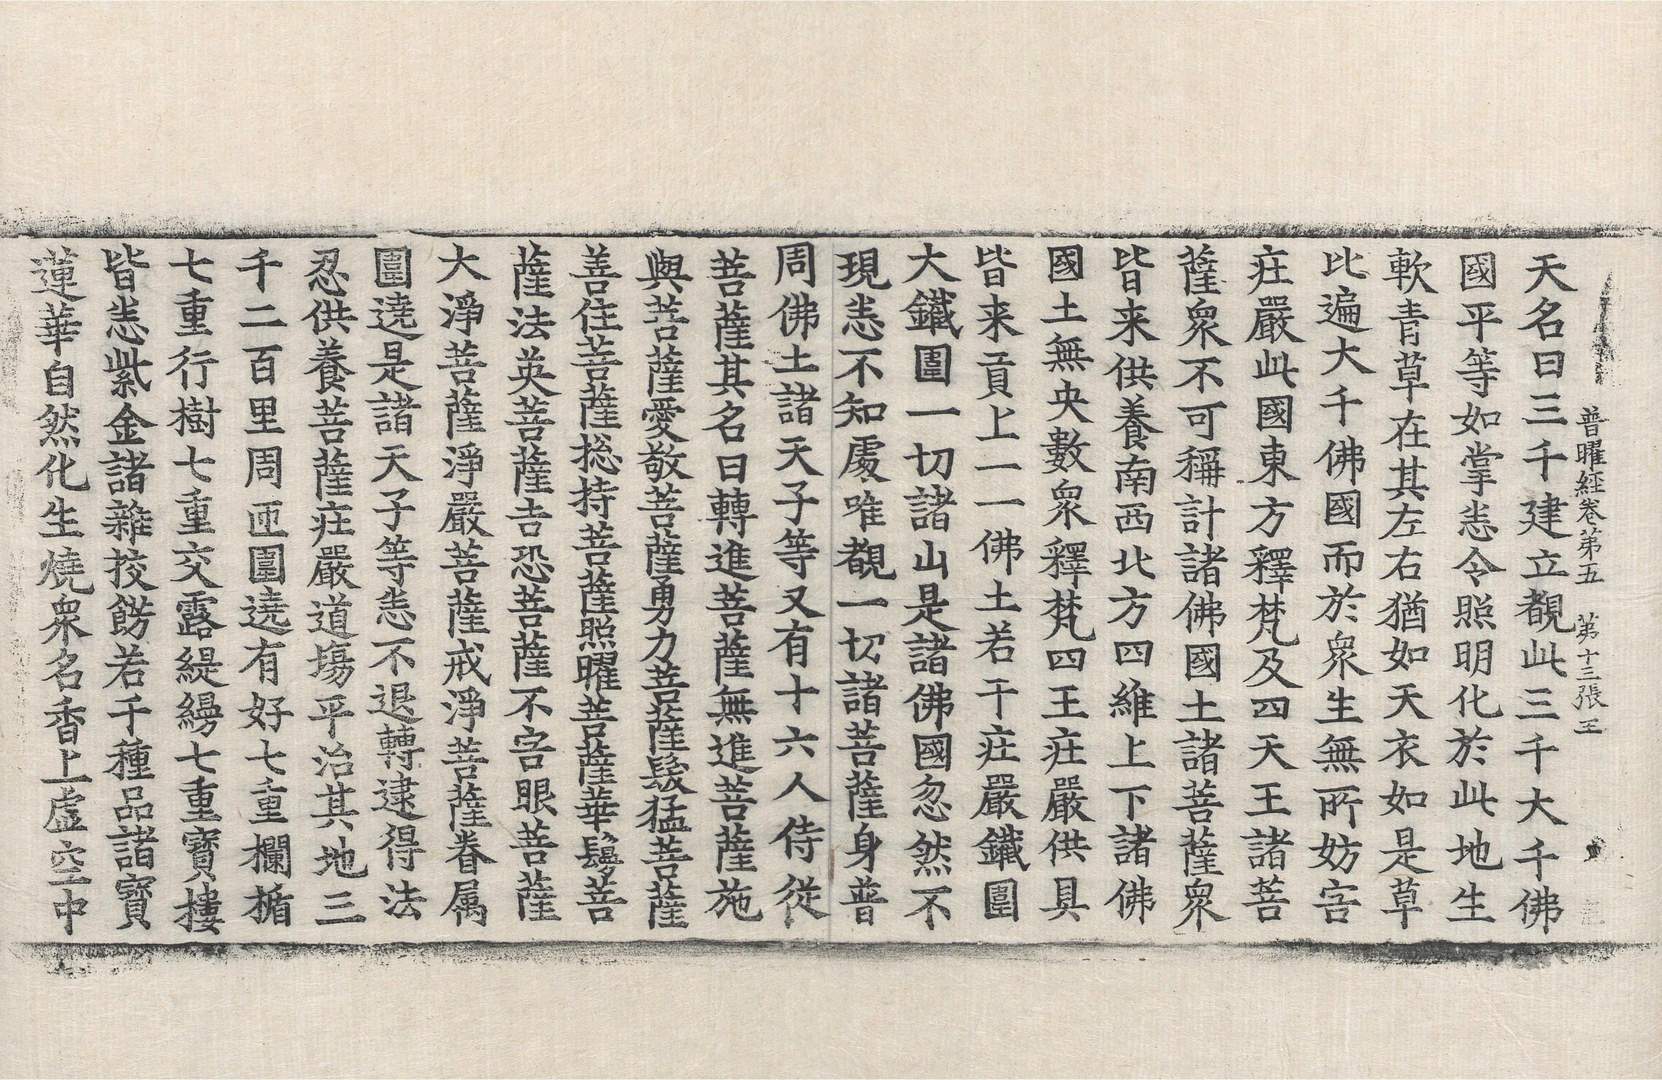 普曜經卷第五 第十三張 王
天名曰三千建立覩此三千大千佛
國平等如掌悉令照明化於此地生
軟青草在其左右猶如天衣如是草
比遍大千佛國而於衆生無所妨害
庄嚴此國東方釋梵及四天王諸菩
薩衆不可稱計諸佛國土諸菩薩衆
皆来供養南西北方四維上下諸佛
國土無央數衆釋梵四王庄嚴供具
皆来貢上一一佛土若干庄嚴鐵圍
大鐵圍一切諸山是諸佛國忽然不
現悉不知處唯覩一切諸菩薩身普
周佛土諸天子等又有十六人侍從
菩薩其名曰轉進菩薩無進菩薩施
與菩薩愛敬菩薩勇力菩薩䭷猛菩薩
善住菩薩捴持菩薩照曜菩薩華鬘菩
薩法英菩薩吉恐菩薩不害眼菩薩
大淨菩薩淨嚴菩薩戒淨菩薩眷属
圍遶是諸天子等悉不退轉逮得法
忍供養菩薩庄嚴道塲平治其地三
千二百里周迊圍遶有好七重欄楯
七重行樹七重交露緹縵七重寶樓
皆悉紫金諸雜挍餝若千種品諸寶
蓮華自然化生燒衆名香上虛空中